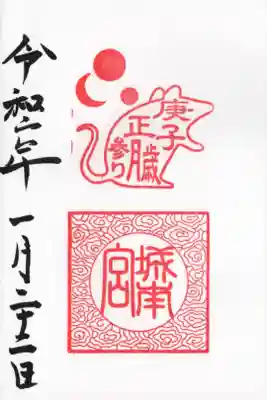 庚子
正
参り
城南
宮
令和二年 一月二十二日